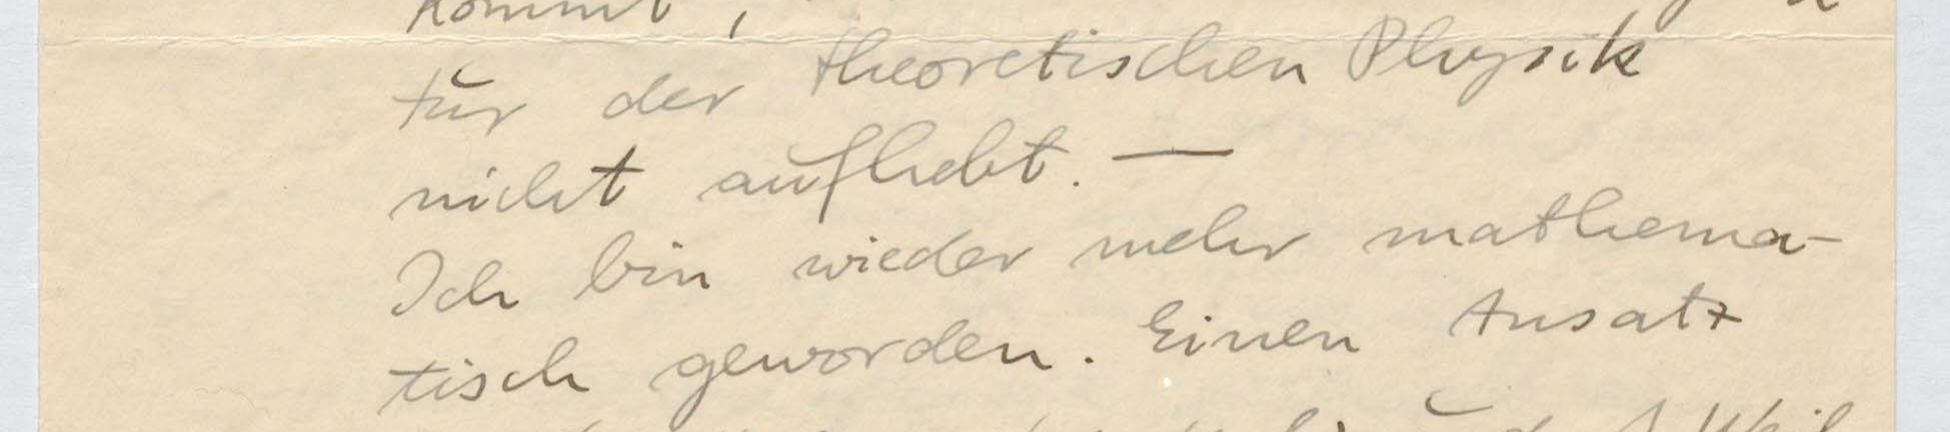 kommt,
tur der theoretischen Physik
nicht aufhebt. —
Ich bin wieder mehr mathema-
tisch geworden. Einen Ansatz